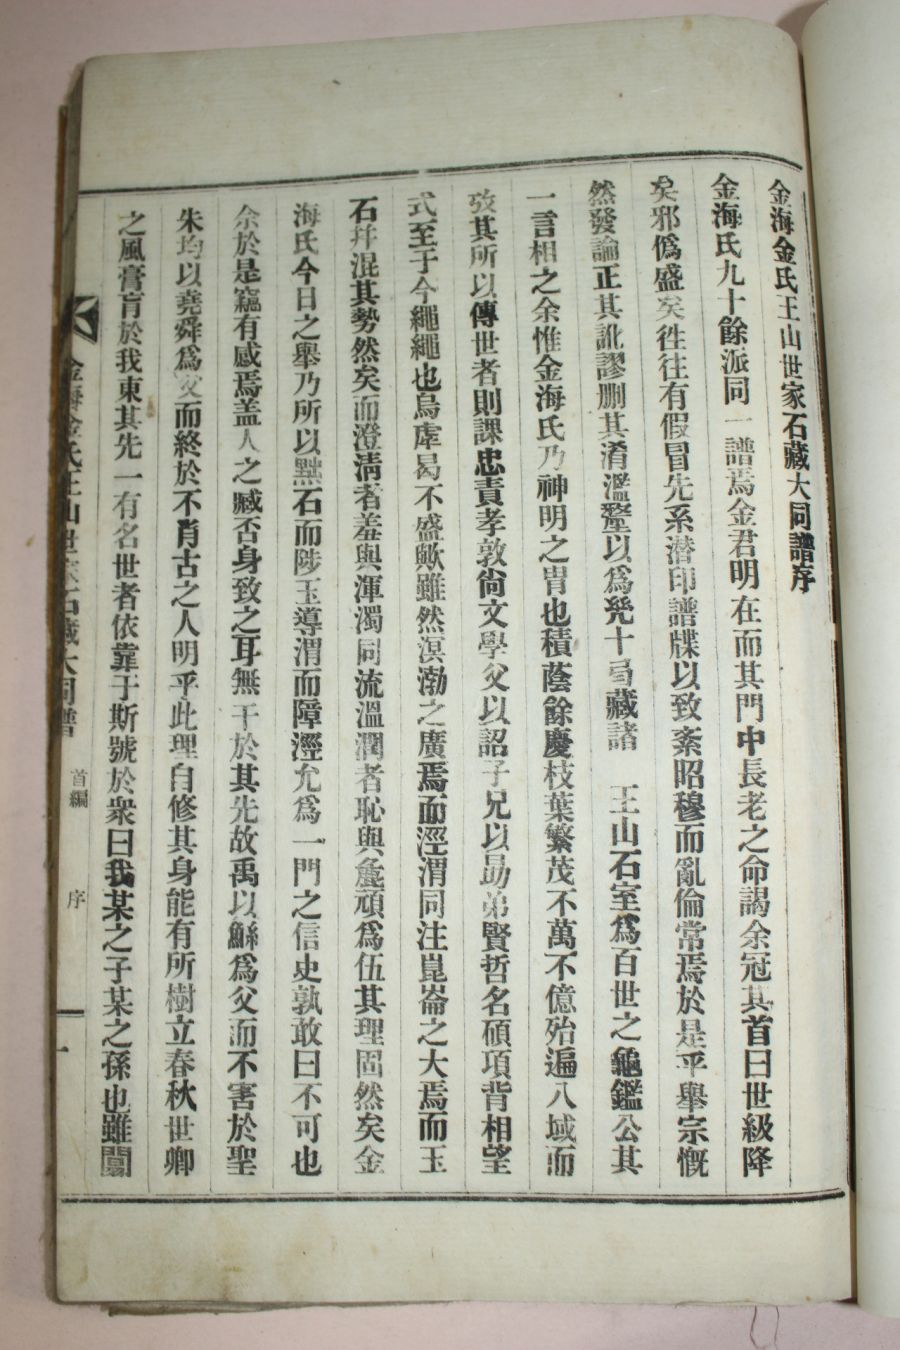 金海金氏王山世家石藏大同譜序
金海氏九十餘派同一譜焉金君明在而其門中長老之命謁余冠其首曰世級降
矣邪僞盛矣徃往有假冒先系潜印譜牒以致紊昭穆而亂倫常焉於是乎擧宗慨
然發論正其訛謬删其淆濫鐅以爲凳十局藏諸 王山石室爲百世之龜鑑公其
一言相之余惟金海氏乃神明之胄也積蔭餘慶枝葉繁茂不萬不億殆遍八域而
攷其所以傳世者則課忠責孝敦尙文學父以詔子兄以勗弟賢哲名碩項背相望
式至于今繩繩也烏虖曷不盛歟雖然溟渤之廣焉而涇渭同注崑崙之大焉而玉
石幷混其勢然矣而澄淸者羞與渾濁同流溫潤者恥與麁頑爲伍其理固然矣金
海氏今日之擧乃所以黜石而陟玉導渭而障涇允爲一門之信史孰敢曰不可也
余於是竊有感焉盖人之臧否身致之耳無干於其先故禹以鯀爲父而不害於聖
朱均以堯舜爲父而終於不肖古之人明乎此理自修其身能有所樹立春秋世卿
之風膏肓於我東其先一有名世者依靠于斯號於衆曰我某之子某之孫也雖闒
金海金氏王山世家石藏大同譜 首編 序 一